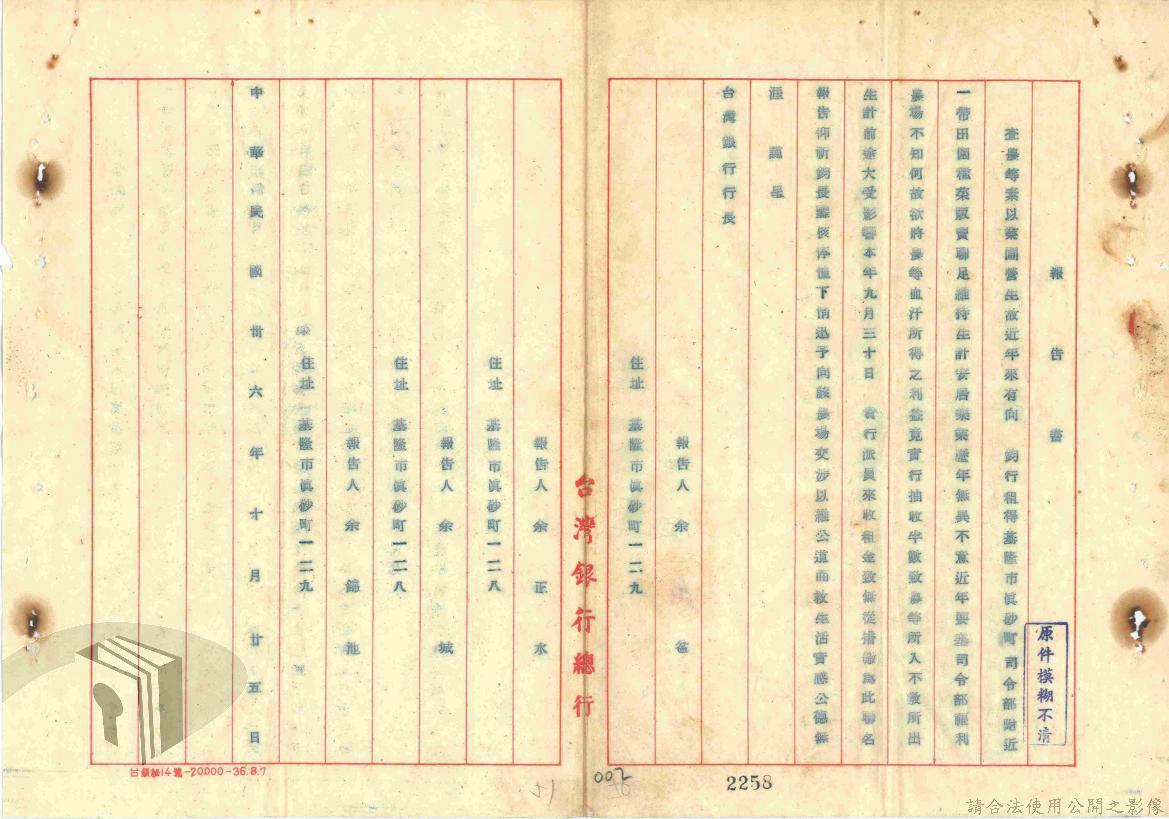 報告書
查農等素以菜園營生故近年來有向 鈞行租得基隆市眞砂町司令部附近
一帶田園種菜販賣聊足維持生計安居樂業歷年無異不意近年要塞司令部福利
農場不知何故欲將農等血汗所得之利益竟實行抽收半數致農等所入不敷所出
生計前途大受影響本年九月三十日 貴行派員來收租金致無從措繳爲此聯名
報告仰祈鈞長鑒核俯恤下情迅予向該農場交涉以維公道而救生活實感公德無
涯謹呈
台灣銀行行長
報告人 余
住址 基隆市眞砂町一二九
台灣銀行總行
報告人 余正水
住址 基隆市眞砂町一二八
報告人 余城
住址 基隆市眞砂町一二八
報告人 余錦池
住址 基隆市眞砂町一二九
中華民國卅六年十月廿五日
原件模糊不清
台銀總14號-20.000-36.8.7
002
2258
請合法使用公開之影像